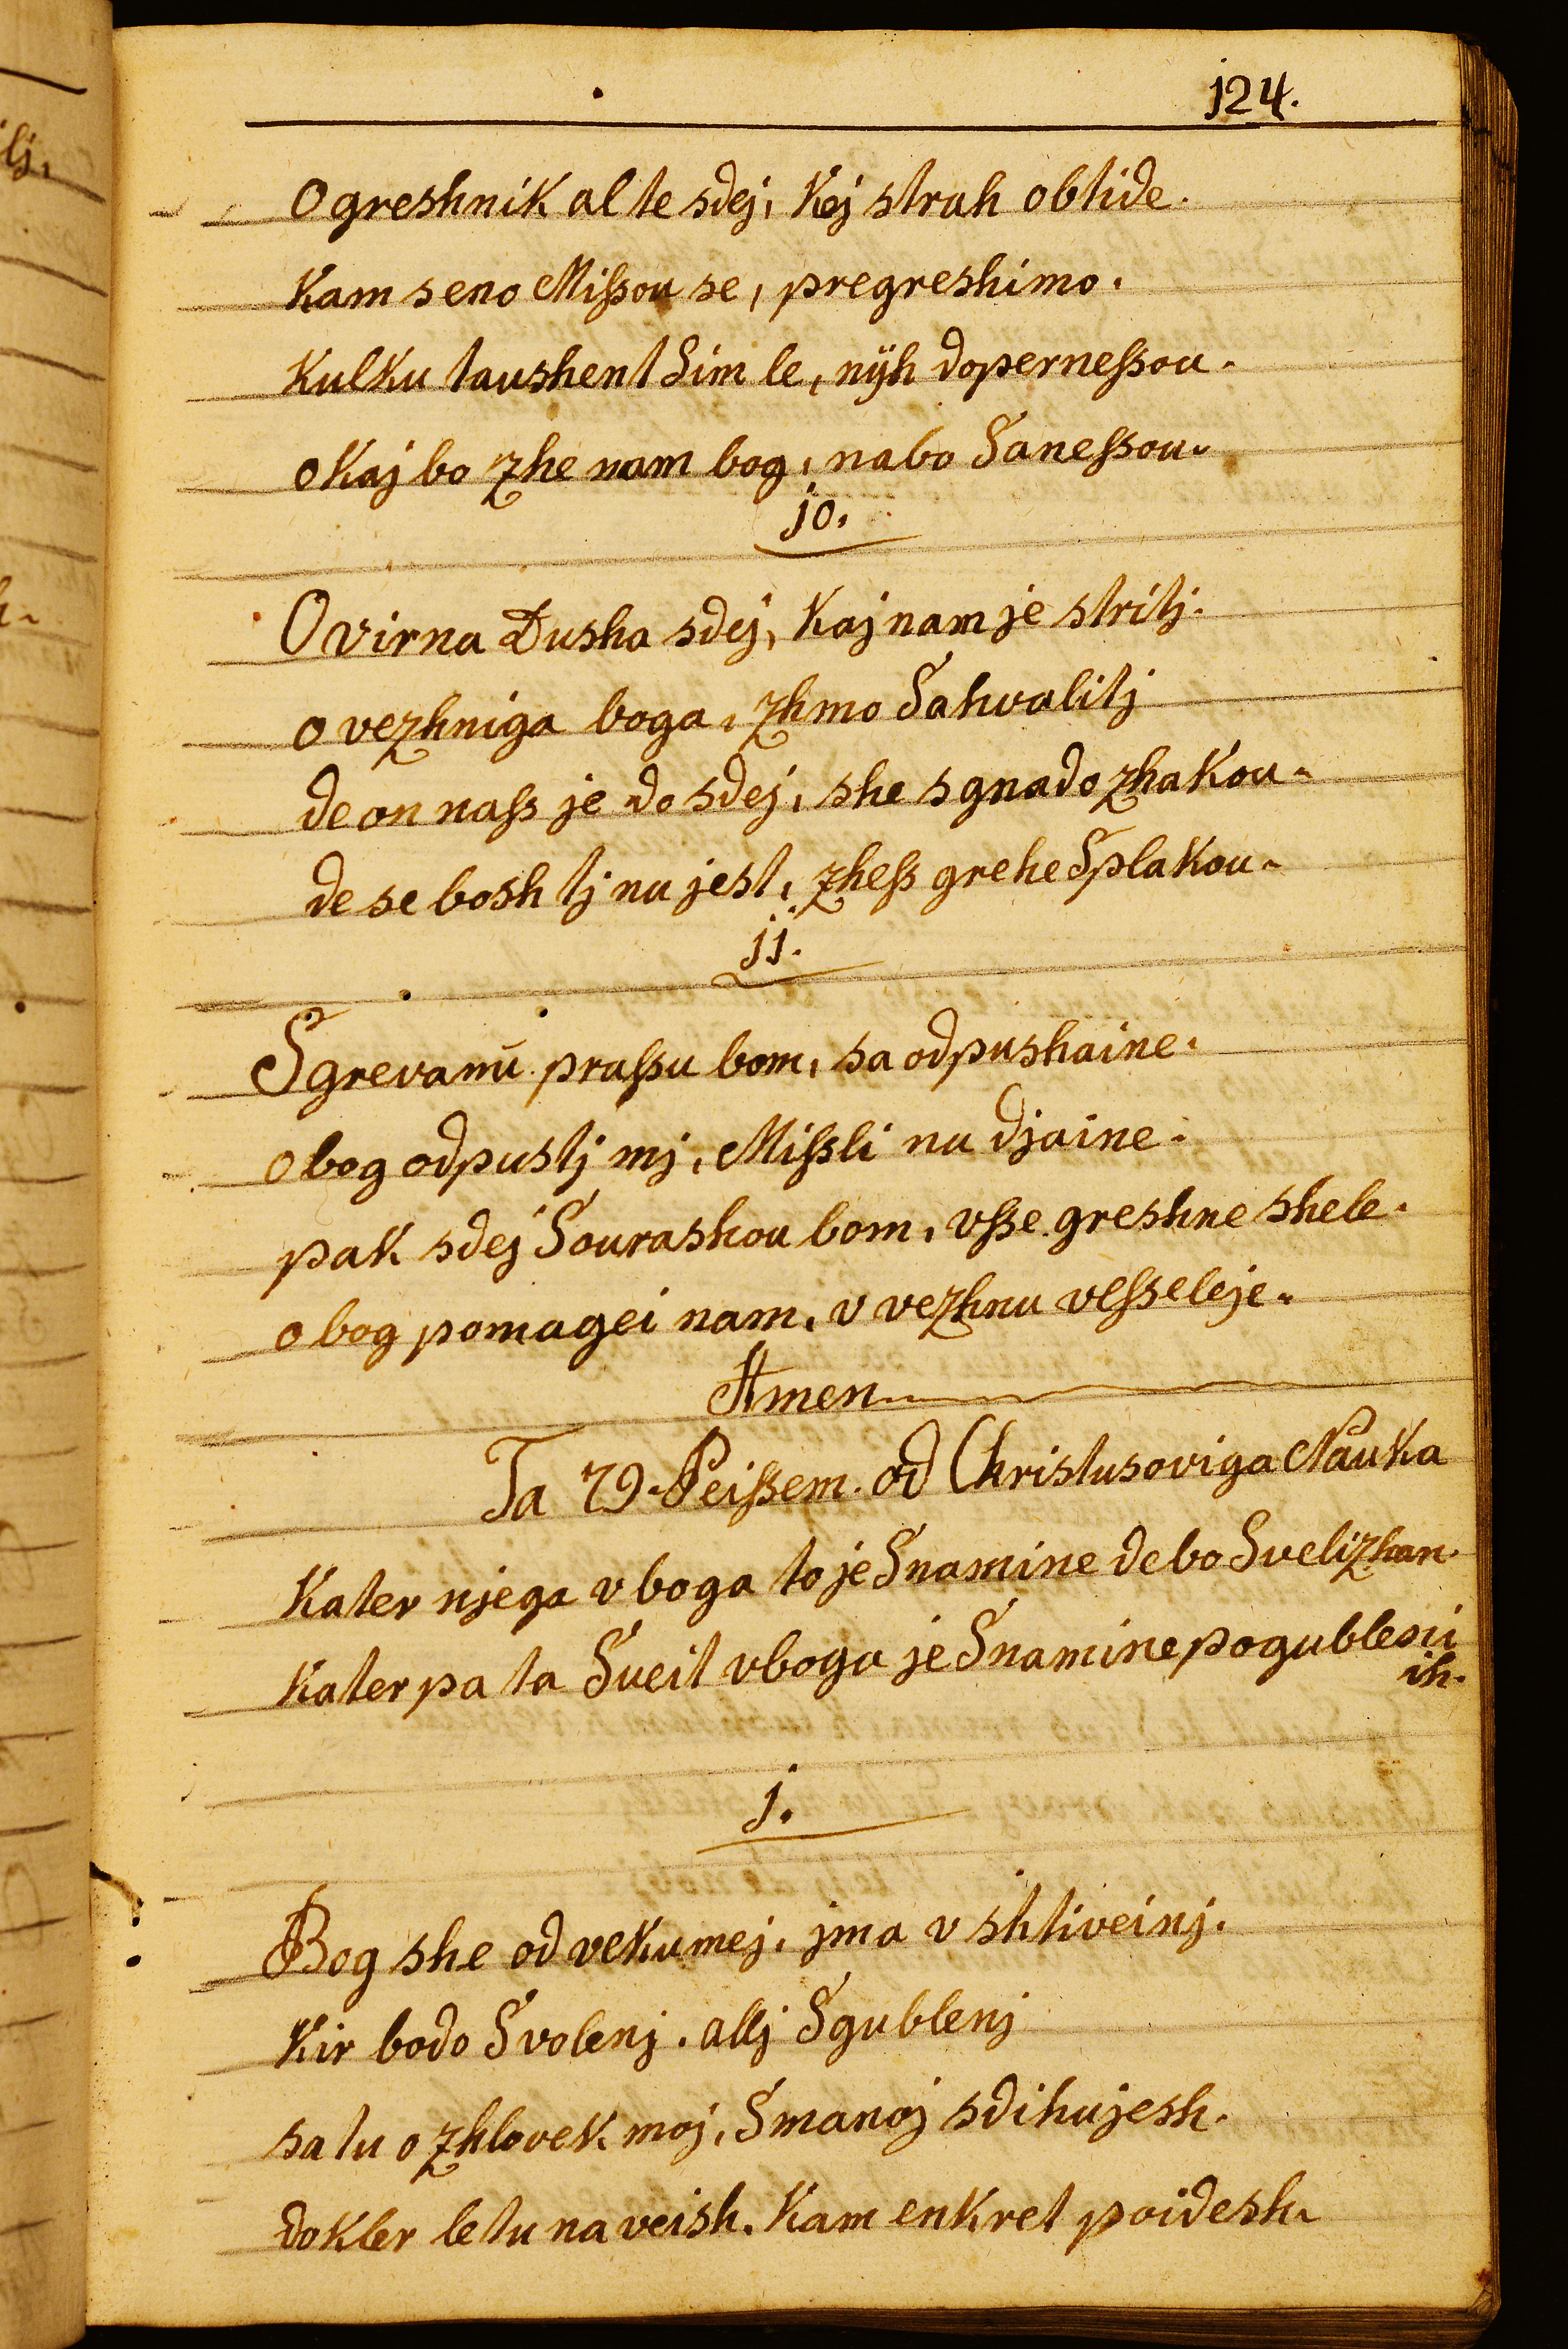 j24.
O greshnik al te sdej, Kej strah obtide.
Kam s eno Mißou se, pregreshimo.
Kulku taushent Sim le, nÿh doperneßou.
o Kaj bo zhe nam bog, nabo Saneßou.
jo.
O virna Dusha sdej, Kaj nam je stritj.
o vezhniga boga, zhmo Sahvalitj
de on naß je do sdej, she s gnado zhakou.
de se bosh tj nu jest, zheß grehe Splakou.
jj.
S grevanu praßu bom, sa odpushaine.
o bog odpustj mj, Mißli nu djaine.
pak sdej Sourashou bom, vße greshne shele.
o bog pomagei nam, v vezhnu veßseleje.
Amen
Ta 79. Peißem. od Christusoviga Nauka
Kater njega vboga to je Snamine de bo Svelizhan.
Kater pa ta Sveit vboga je Snamine pogublenii
ih.
j.
Bog she od vekumej, jma v shtiveinj.
Kir bodo Svolenj. allj Sgublenj
sa tu o zhlovek moj, Smanoj sdihujesh.
dokler letu na veish. Kam enkret poidesh.